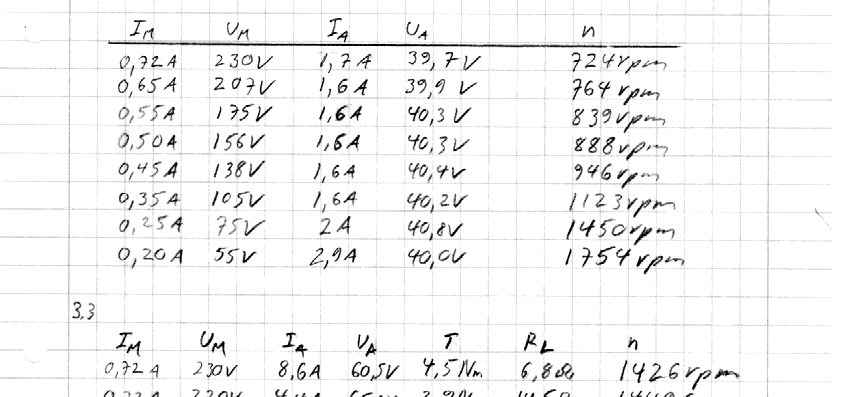 I_M U_M I_A U_A n
0,72A 230V 1,7A 39,7V 724rpm
0,65A 207V 1,6A 39,9V 764rpm
0,55A 175V 1,6A 40,3V 839rpm
0,50A 156V 1,6A 40,3V 888rpm
0,45A 138V 1,6A 40,4V 946rpm
0,35A 105V 1,6A 40,2V 1123rpm
0,25A 75V 2A 40,8V 1450rpm
0,20A 55V 2,9A 40,0V 1754rpm
3.3
I_M U_M I_A U_A T R_L n
0,72A 230V 8,6A 60,5V 4,5Nm 6,8Ω 1426rpm